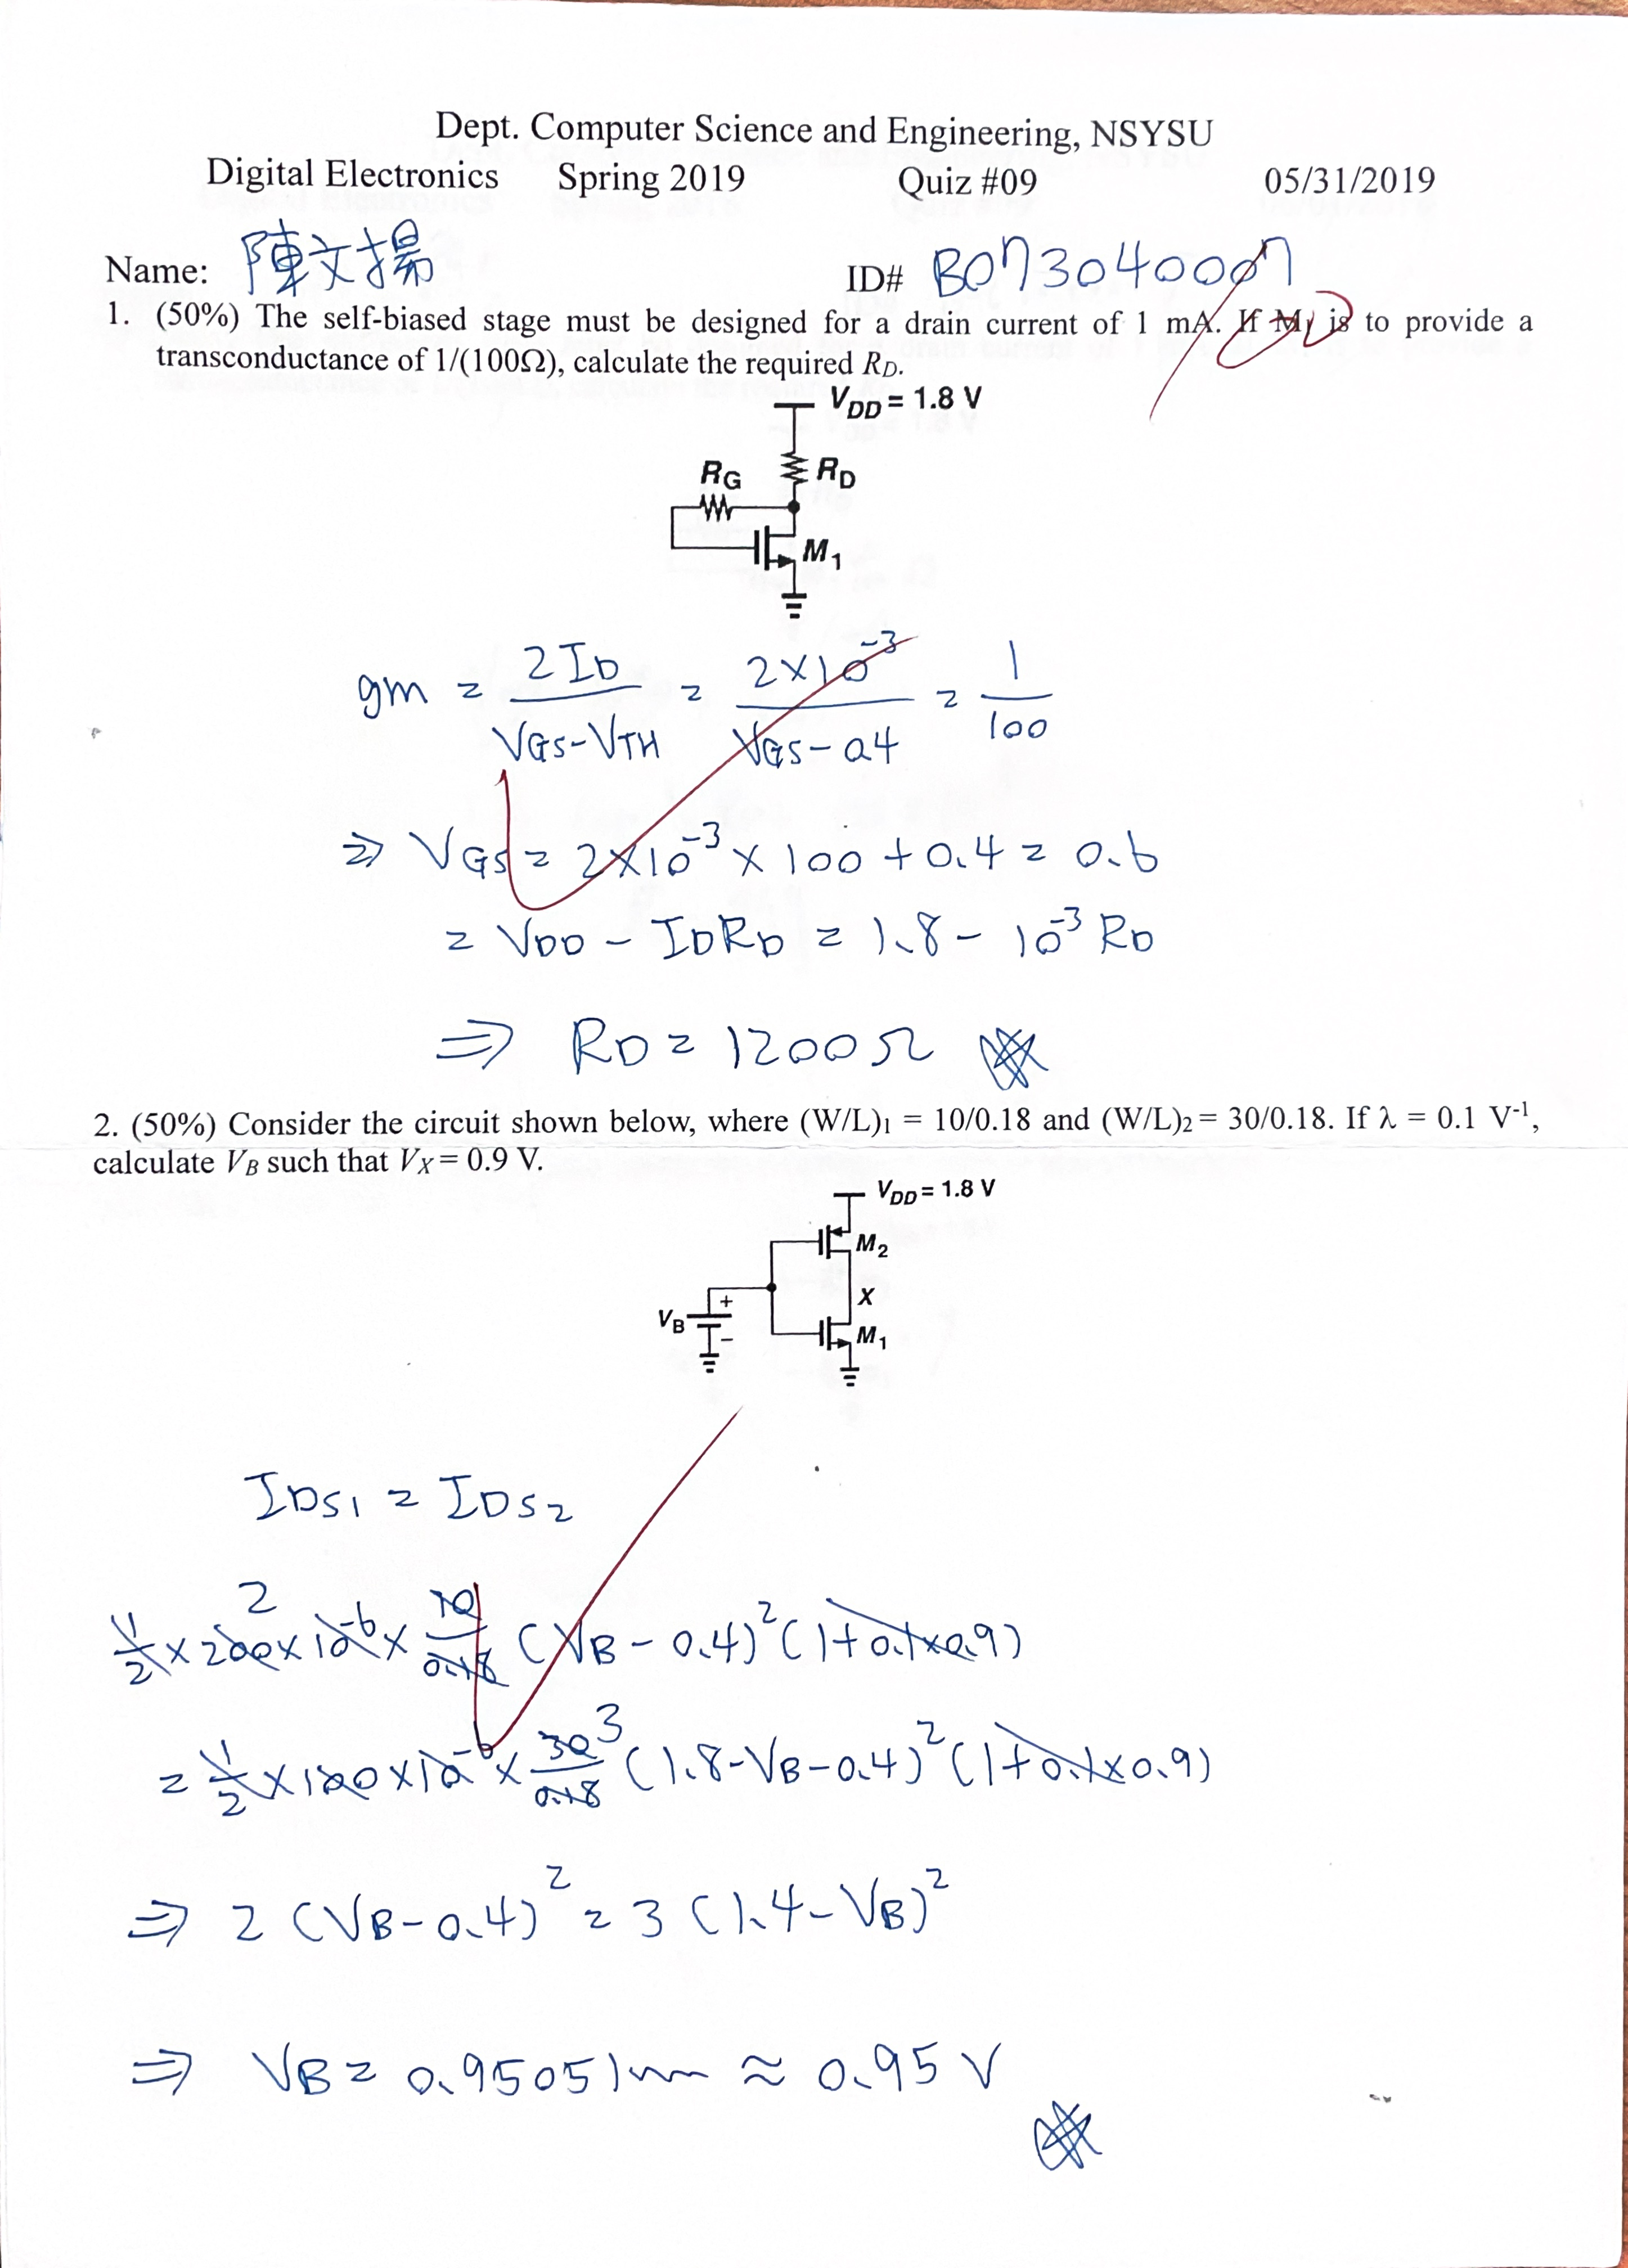 Dept. Computer Science and Engineering, NSYSU
Digital Electronics Spring 2019 Quiz #09 05/31/2019
Name: 陳文揚 ID# B073040007
1. (50%) The self-biased stage must be designed for a drain current of 1 mA. If M₁ is to provide a
transconductance of 1/(100Ω), calculate the required R_D.
V_DD = 1.8 V
R_G R_D
M₁
gm = 2I_D / (V_GS - V_TH) = 2×10⁻³ / (V_GS - 0.4) = 1/100
⇒ V_GS = 2×10⁻³ × 100 + 0.4 = 0.6
= V_DD - I_D R_D = 1.8 - 10⁻³ R_D
⇒ R_D = 1200Ω
2. (50%) Consider the circuit shown below, where (W/L)₁ = 10/0.18 and (W/L)₂ = 30/0.18. If λ = 0.1 V⁻¹,
calculate V_B such that V_X = 0.9 V.
V_DD = 1.8 V
M₂
X
V_B + -
M₁
I_DS1 = I_DS2
1/2 × 200 × 10⁻⁶ × 10/0.18 (V_B - 0.4)² (1 + 0.1×0.9)
= 1/2 × 100 × 10⁻⁶ × 30/0.18 (1.8 - V_B - 0.4)² (1 + 0.1×0.9)
⇒ 2 (V_B - 0.4)² = 3 (1.4 - V_B)²
⇒ V_B = 0.95051 ≈ 0.95 V